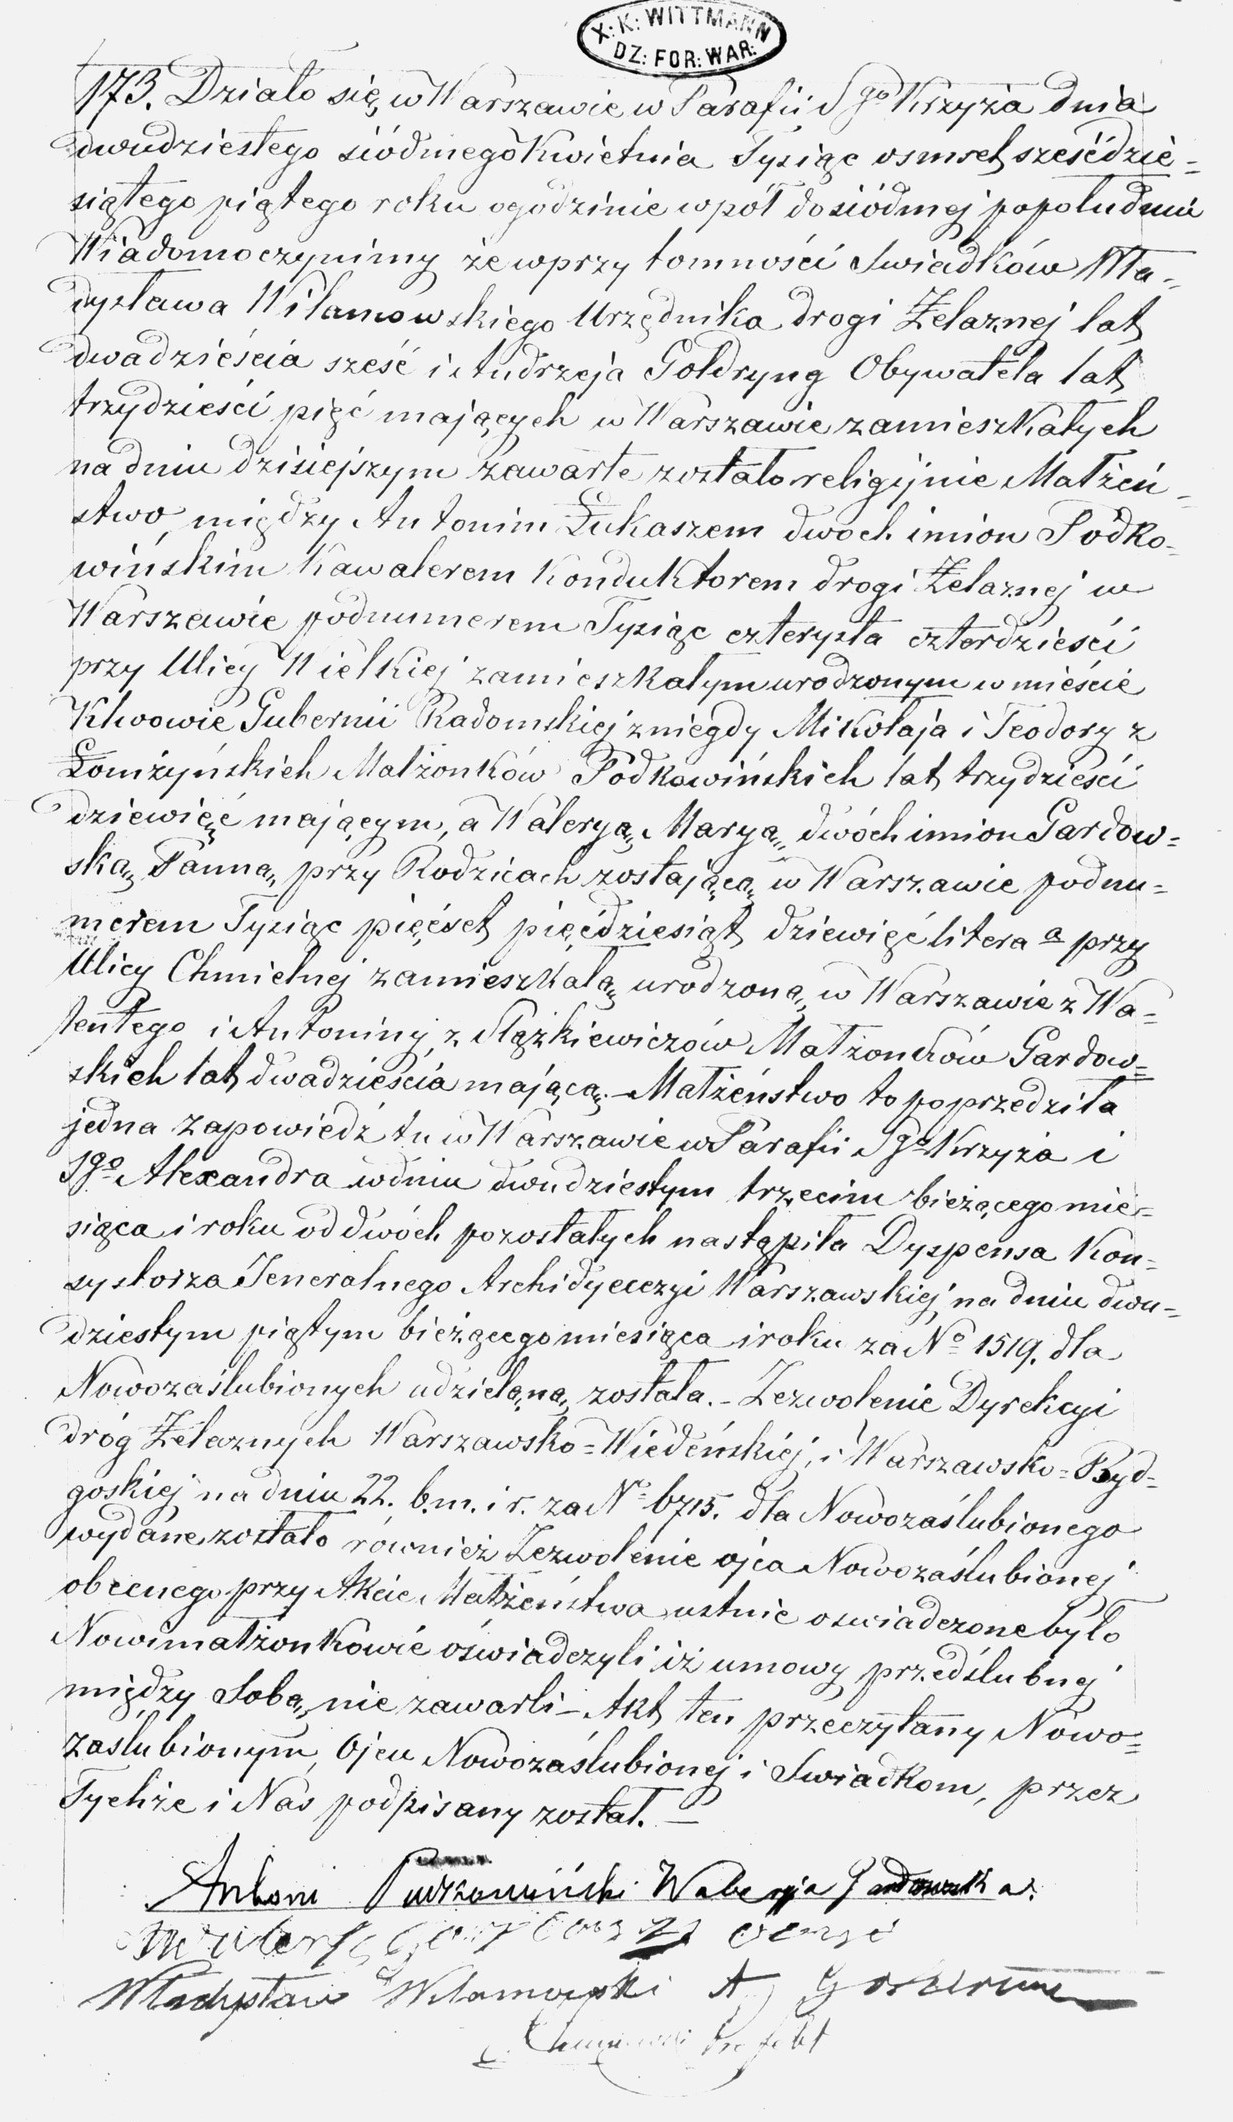 X: K: WITTMANN
DZ: FOR: WAR:
173. Działo się w Warszawie w Parafii Sgo Krzyża dnia
dwudziestego siódmego Kwietnia Tysiąc osmset sześćdzie=
siątego piątego roku o godzinie wpół do siódmej popołudniu
Wiadomo czynimy że w przytomności Swiadków Wła=
dysława Wilamowskiego Urzędnika drogi Żelaznej lat
dwadzieścia sześć i Andrzeja Goldryng Obywatela lat
trzydzieści pięć mających w Warszawie zamieszkałych
na dniu dzisiejszym zawarte zostało religijnie Małżeń=
stwo między Antonim Łukaszem dwoch imion Podko=
wińskim Kawalerem Konduktorem drogi Żelaznej w
Warszawie pod numerem Tysiąc czterysta czterdzieści
przy Ulicy Wielkiej zamieszkałym urodzonym w mieście
Klwowie Gubernii Radomskiej z niegdy Mikołaja i Teodory z
Łomżyńskich Małżonków Podkowińskich lat trzydzieści
dziewięć mającym, a Waleryą Maryą dwóch imion Gardow=
ską Panną przy Rodzicach zostającą w Warszawie pod nu=
merem Tysiąc pięćset pięćdziesiąt dziewięć litera a przy
Ulicy Chmielnej zamieszkałą urodzoną w Warszawie z Wa=
lentego i Antoniny z Slązkiewiczów Małżonków Gardow=
skich lat dwadzieścia mającą. – Małżeństwo to poprzedziła
jedna zapowiedź tu w Warszawie w Parafii Sgo Krzyża i
Sgo Alexandra w dniu dwudziestym trzecim bieżącego mie=
siąca i roku od dwóch pozostałych nastąpiła Dyspensa Kon=
systorza Jeneralnego Archidyecezyi Warszawskiej na dniu dwu=
dziestym piątym bieżącego miesiąca i roku za No 1519. dla
Nowozaślubionych udzieloną została. – Zezwolenie Dyrekcyi
dróg Żelaznych Warszawsko=Wiedeńskiej, i Warszawsko=Byd=
goskiej na dniu 22. b.m. i r. za No 6715. dla Nowozaślubionego
wydane zostało również Zezwolenie ojca Nowozaślubionej
obecnego przy Akcie Małżeństwa ustnie oswiadczone było
Nowi małżonkowie oświadczyli iż umowy przedślubnej
między Sobą nie zawarli – Akt ten przeczytany Nowo=
zaślubionym, Ojcu Nowozaślubionej i Swiadkom, przez
Tychże i Nas podpisany został. –
Antoni Podkowiński Walerya Gardowska.
Walenty Gardowski ociec
Władysław Wilamowski A
Prefekt